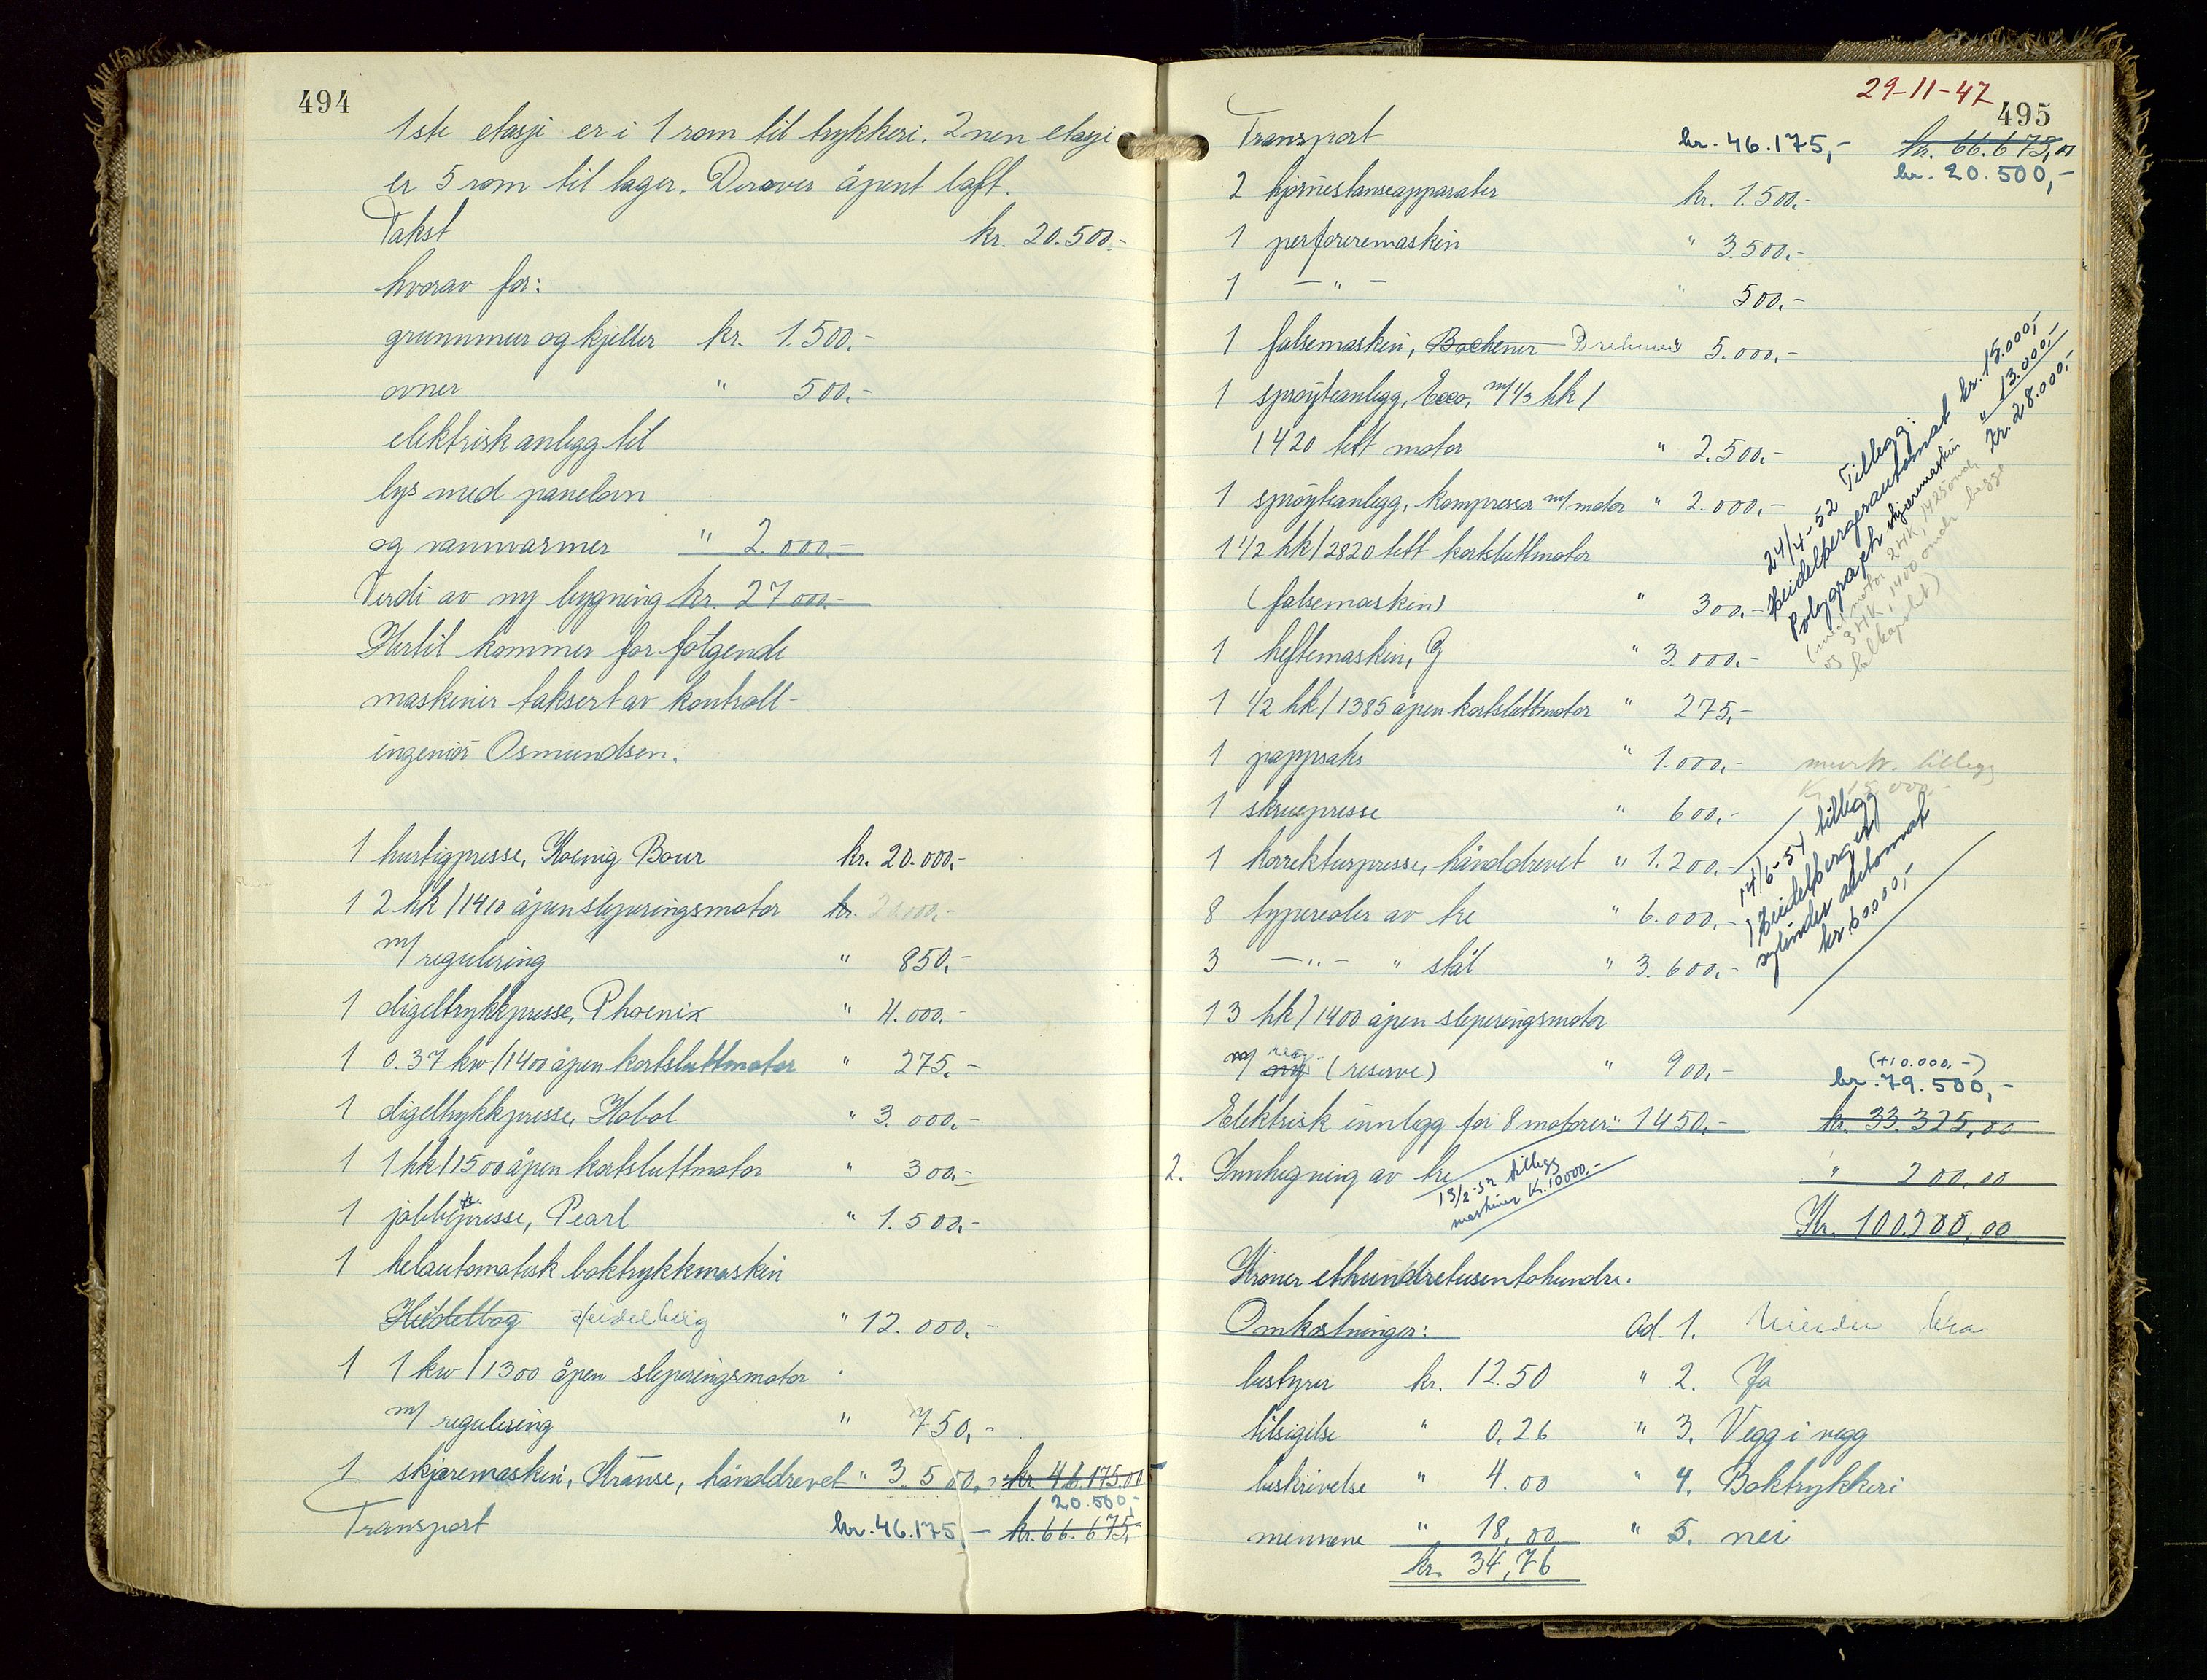 494
1ste etasje er i 1 rom til trykkeri. 2nen etasje
er 5 rom til lager. Derover åpent loft.
Takst kr. 20.500.-
hvorav for:
grunnmur og kjeller kr. 1.500.-
ovner " 500.-
elektrisk anlegg til
lys med panelovn
og vannvarmer " 2.000.-
Verdi av ny bygning kr. 27000.-
Hertil kommer for følgende
maskiner taksert av kontroll-
ingeniør Osmundsen.
1 hurtigpresse, Koenig Bour kr. 20.000.-
1 2 hk/1410 åpen sleperingsmotor kr.
m/ regulering " 850.-
1 digeltrykkpresse, Phoenix " 4.000.-
1 0.37 kw/1400 åpen kortsluttmotor " 275.-
1 digeltrykkpresse, Kobol " 3.000.-
1 1 hk/1500 åpen kortsluttmotor " 300.-
1 jobbtr.presse, Pearl " 1.500.-
1 helautomatisk boktrykkmaskin
Heidelbog Heidelberg " 12.000.-
1 1 kw/1300 åpen sleperingsmotor
m/ regulering " 750,-
1 skjæremaskin, Kranse, hånddrevet " 3.500,- kr. 46.175.00
20.500,-
Transport kr. 46.175,- kr. 66.675,-
29-11-47
495
Transport kr. 46.175,- kr. 66.675,00
kr. 20.500,-
2 hjørnestanseapparater kr. 1.500.-
1 perforeremaskin " 3.500.-
1 - " - " 500.-
1 falsemaskin, Bochener Brehmer 5.000.-
1 sprøyteanlegg, Ecco, m/ 1/3 hk/
1420 tett motor " 2.500.-
1 sprøyteanlegg, kompressor m/ motor " 2.000.-
1 1/2 hk/2820 tett kortsluttmotor
(falsemaskin) " 300.-
1 heftemaskin, G " 3.000.-
1 1/2 hk/1385 åpen kortsluttmotor " 275,-
1 pappsaks " 1.000,-
1 skruepresse " 600,-
1 korrekturpresse, hånddrevet " 1.200.-
8 typereoler av tre " 6.000,-
3 - " - " stål " 3.600,-
1 3 hk/1400 åpen sleperingsmotor
m/ reg. (reserve) " 900,-
Elektrisk innlegg for 8 motorer: 1450.-
24/4-52 Tillegg:
Heidelbergerautomat kr. 15.000,-
Polygraph skjæremaskin " 13.000,-
kr. 28.000,-
(med motor 2 HK, 1425 omdr
og 3 HK, 1400 omdr begge
helkapslet)
murtr. tillegg
14/6-54 tillegg
1 Heidelberger
sylinder automat
kr 60000,-
(+10.000,-)
kr. 79.500,-
kr. 33.325,00
2. Innhegning av tre " 200,00
13/2-52 tillegg
maskiner Kr. 10000.-
Kr. 100200,00
Kroner etthundretusentohundre.
Omkostninger: Ad. 1. Mindre bra
bestyrer kr. 12.50 " 2. Ja
tilsigelse " 0,26 " 3. Vegg i vegg
beskrivelse " 4.00 " 4. Boktrykkeri
mennene " 18,00 " 5. nei
kr. 34,76